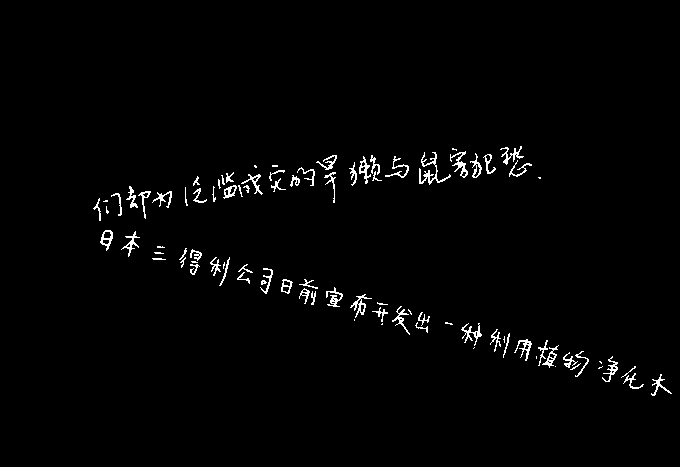 们都为泛滥成灾的旱獭与鼠害犯愁.
日本三得利公司日前宣布开发出一种利用植物净化水